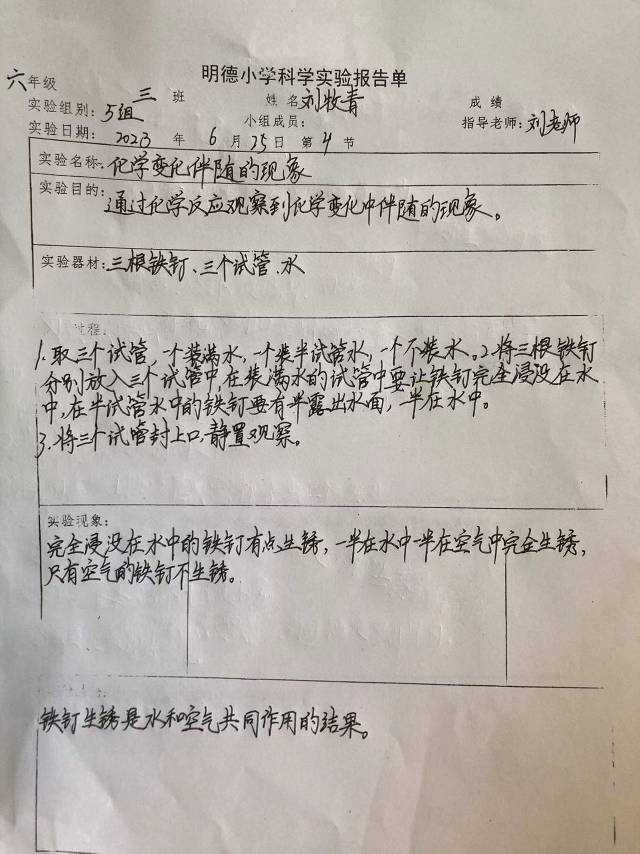 明德小学科学实验报告单
六年级 三 班 姓名 刘牧青 成绩
实验组别: 5组 小组成员: 指导老师: 刘老师
实验日期: 2023 年 6 月 25 日 第 4 节
实验名称: 化学变化伴随的现象
实验目的: 通过化学反应观察到化学变化中伴随的现象。
实验器材: 三根铁钉、三个试管、水
过程:
1.取三个试管,一个装满水,一个装半试管水,一个不装水。2.将三根铁钉
分别放入三个试管中,在装满水的试管中要让铁钉完全浸没在水
中,在半试管水中的铁钉要有半露出水面,一半在水中。
3.将三个试管封上口,静置观察。
实验现象:
完全浸没在水中的铁钉有点生锈,一半在水中一半在空气中完全生锈,
只有空气的铁钉不生锈。
铁钉生锈是水和空气共同作用的结果。